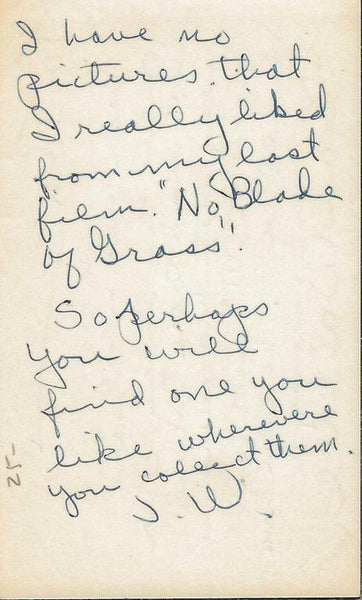 I have no
pictures that
I really liked
from my last
film. "No Blade
of Grass".
So perhaps
you will
find one you
like wherevere
you collect them.
J. W.
25-